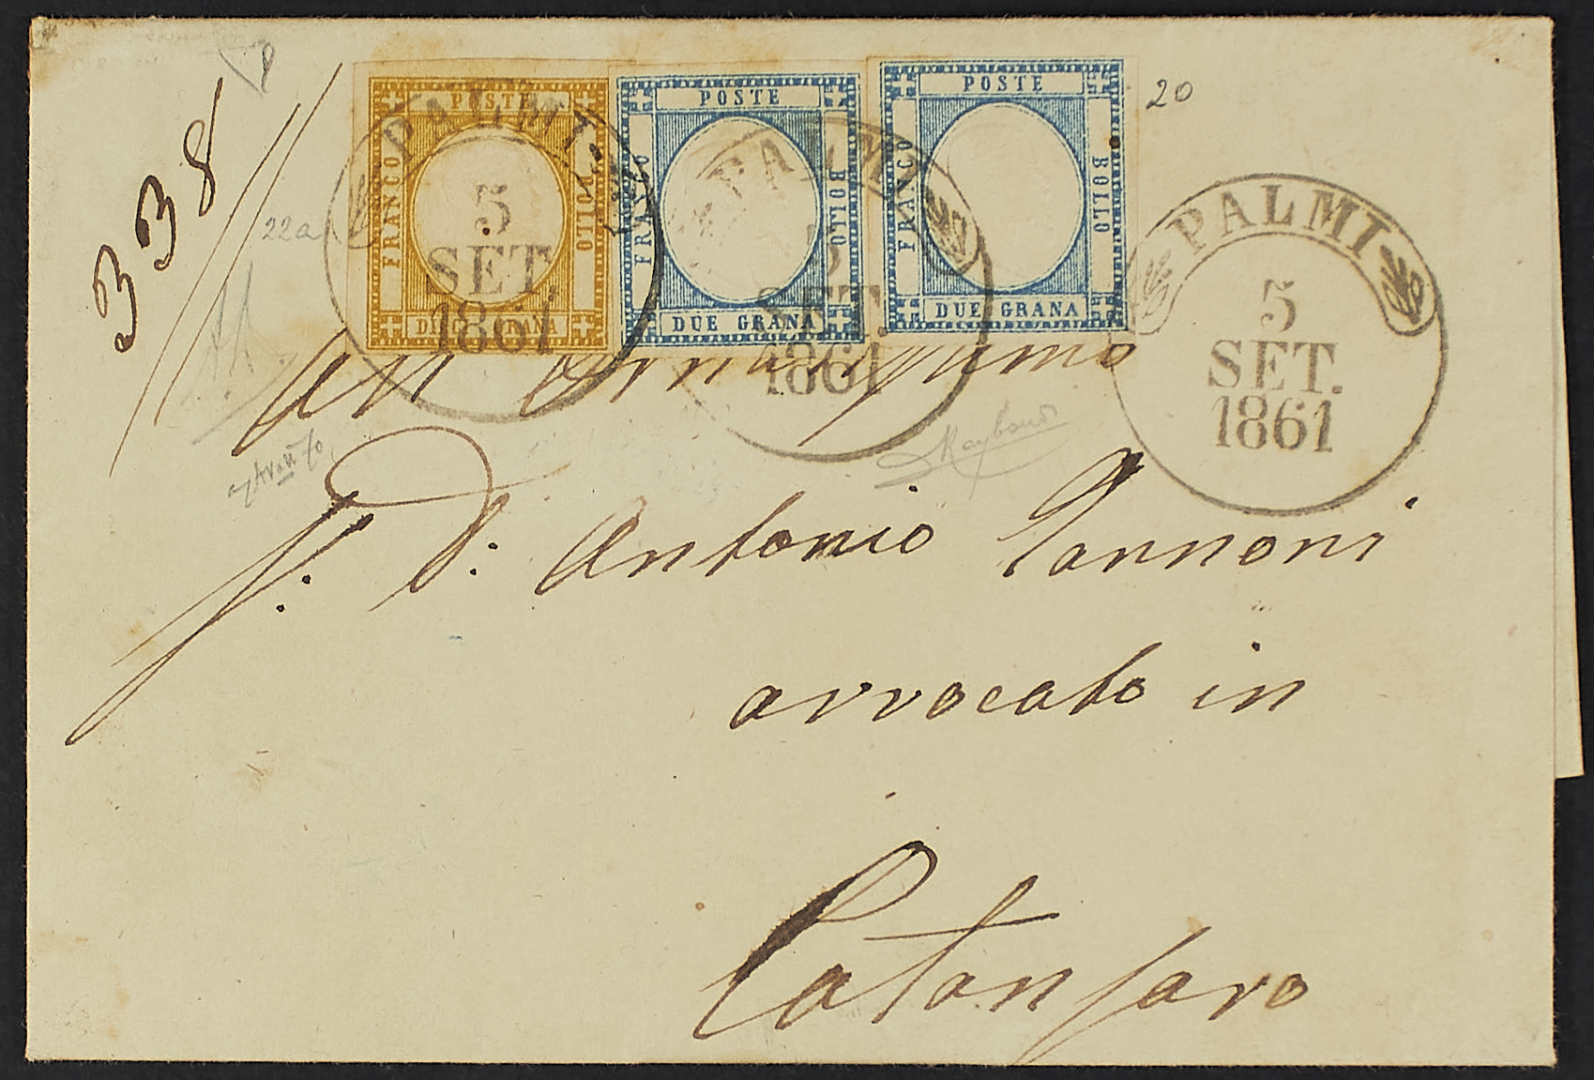 338
20
22a
POSTE
FRANCO
BOLLO
DIECI GRANA
POSTE
FRANCO
BOLLO
DUE GRANA
POSTE
FRANCO
BOLLO
DUE GRANA
PALMI
5
SET.
1861
PALMI
5
SET.
1861
PALMI
5
SET.
1861
All' Ornatissimo
S. D: Antonio Iannoni
avvocato in
Catanzaro